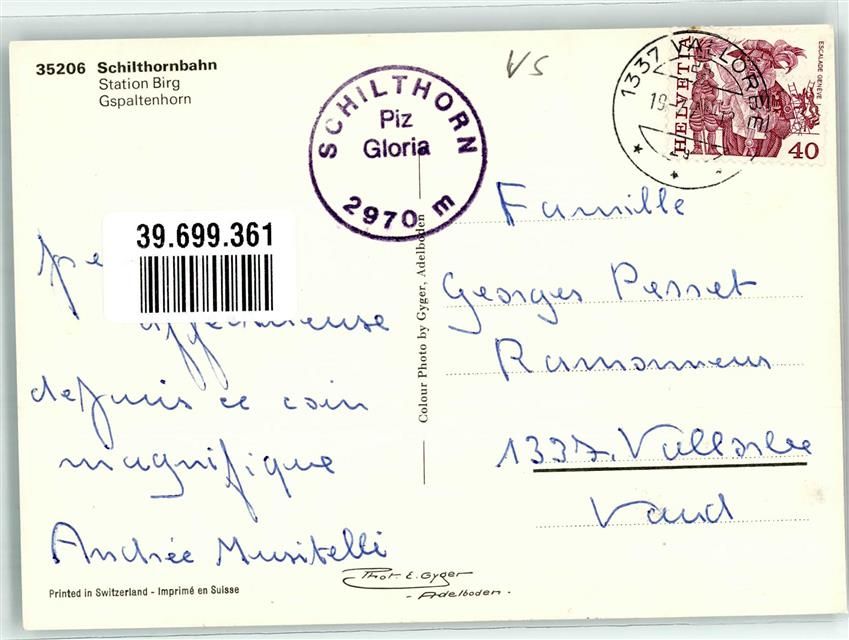 35206 Schilthornbahn
Station Birg
Gspaltenhorn
SCHILTHORN
Piz
Gloria
2970 m
VS
1337 VALLORBE
HELVETIA
ESCALADE GENÈVE
40
39.699.361
affectueuse
depuis ce coin
magnifique
Andrée Musitelli
Colour Photo by Gyger, Adelboden
Famille
Georges Perret
1337. Vallorbe
Vaud
Phot. E. Gyger
- Adelboden.
Printed in Switzerland - Imprimé en Suisse